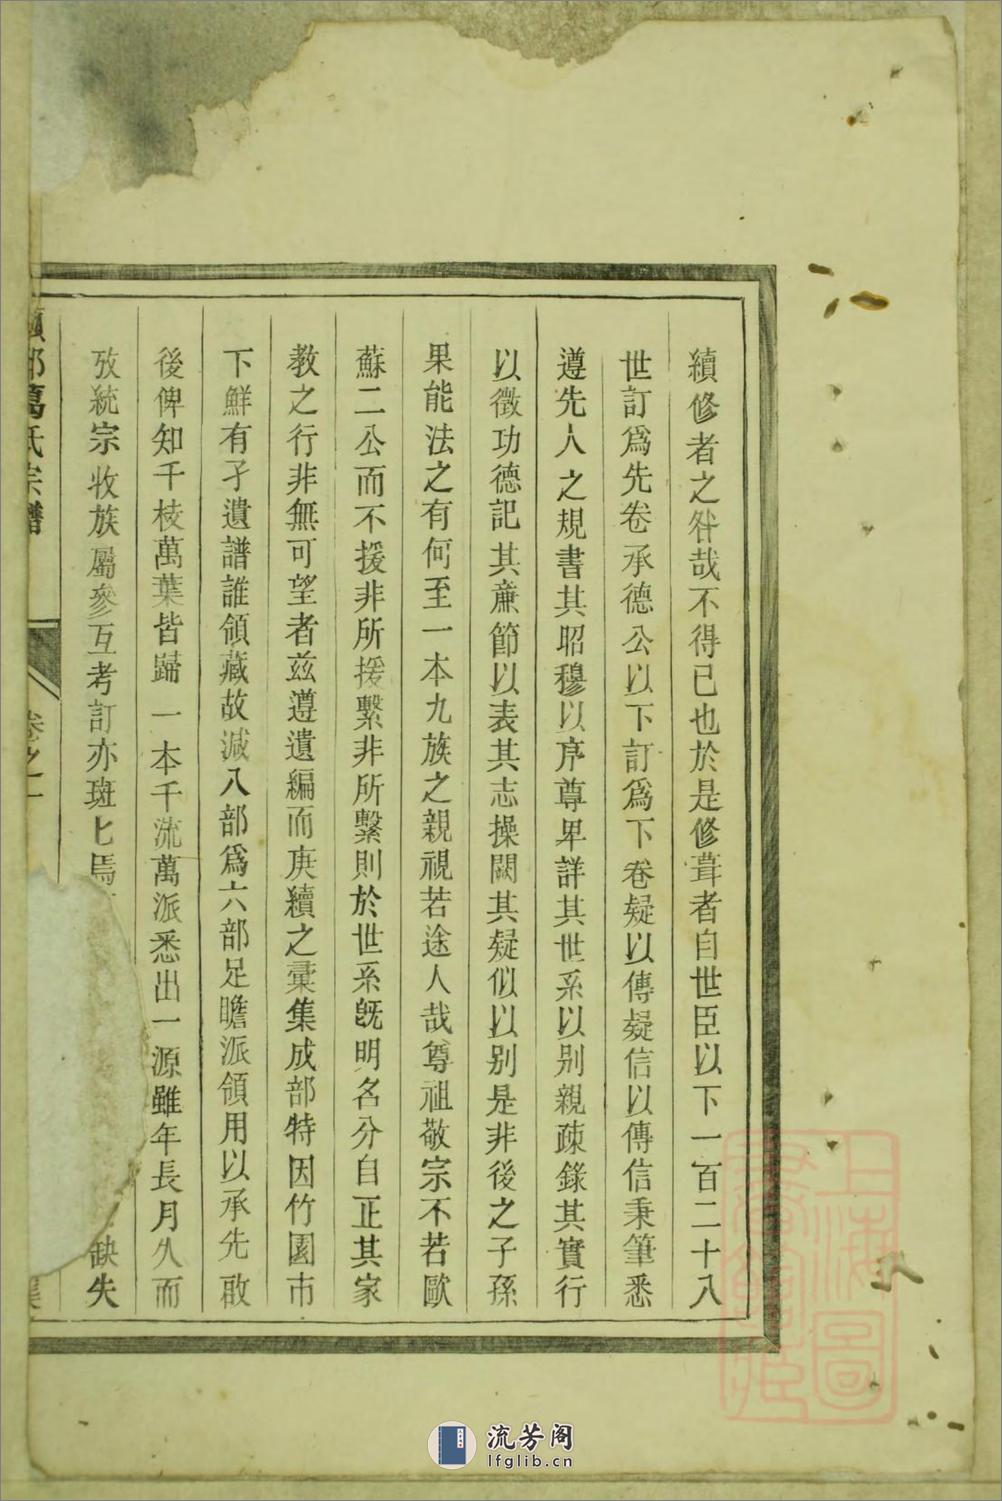 續修者之咎哉不得已也於是修葺者自世臣以下一百二十八
世訂爲先卷承德公以下訂爲下卷疑以傳疑信以傳信秉筆悉
遵先人之規書其昭穆以序尊卑詳其世系以别親疎錄其實行
以徵功德記其亷節以表其志操闕其疑似以别是非後之子孫
果能法之有何至一本九族之親視若途人哉尊祖敬宗不若歐
蘇二公而不援非所援繫非所繫則於世系旣明名分自正其家
教之行非無可望者兹遵遺編而庚續之彚集成部特因竹園市
下鮮有孑遺譜誰領藏故減八部爲六部足瞻派領用以承先啟
後俾知千枝萬葉皆歸一本千流萬派悉出一源雖年長月久而
攷統宗收族屬參互考訂亦斑匕焉
缺失
萬氏宗譜
卷之一
上海圖書館藏
流芳阁
lfglib.cn